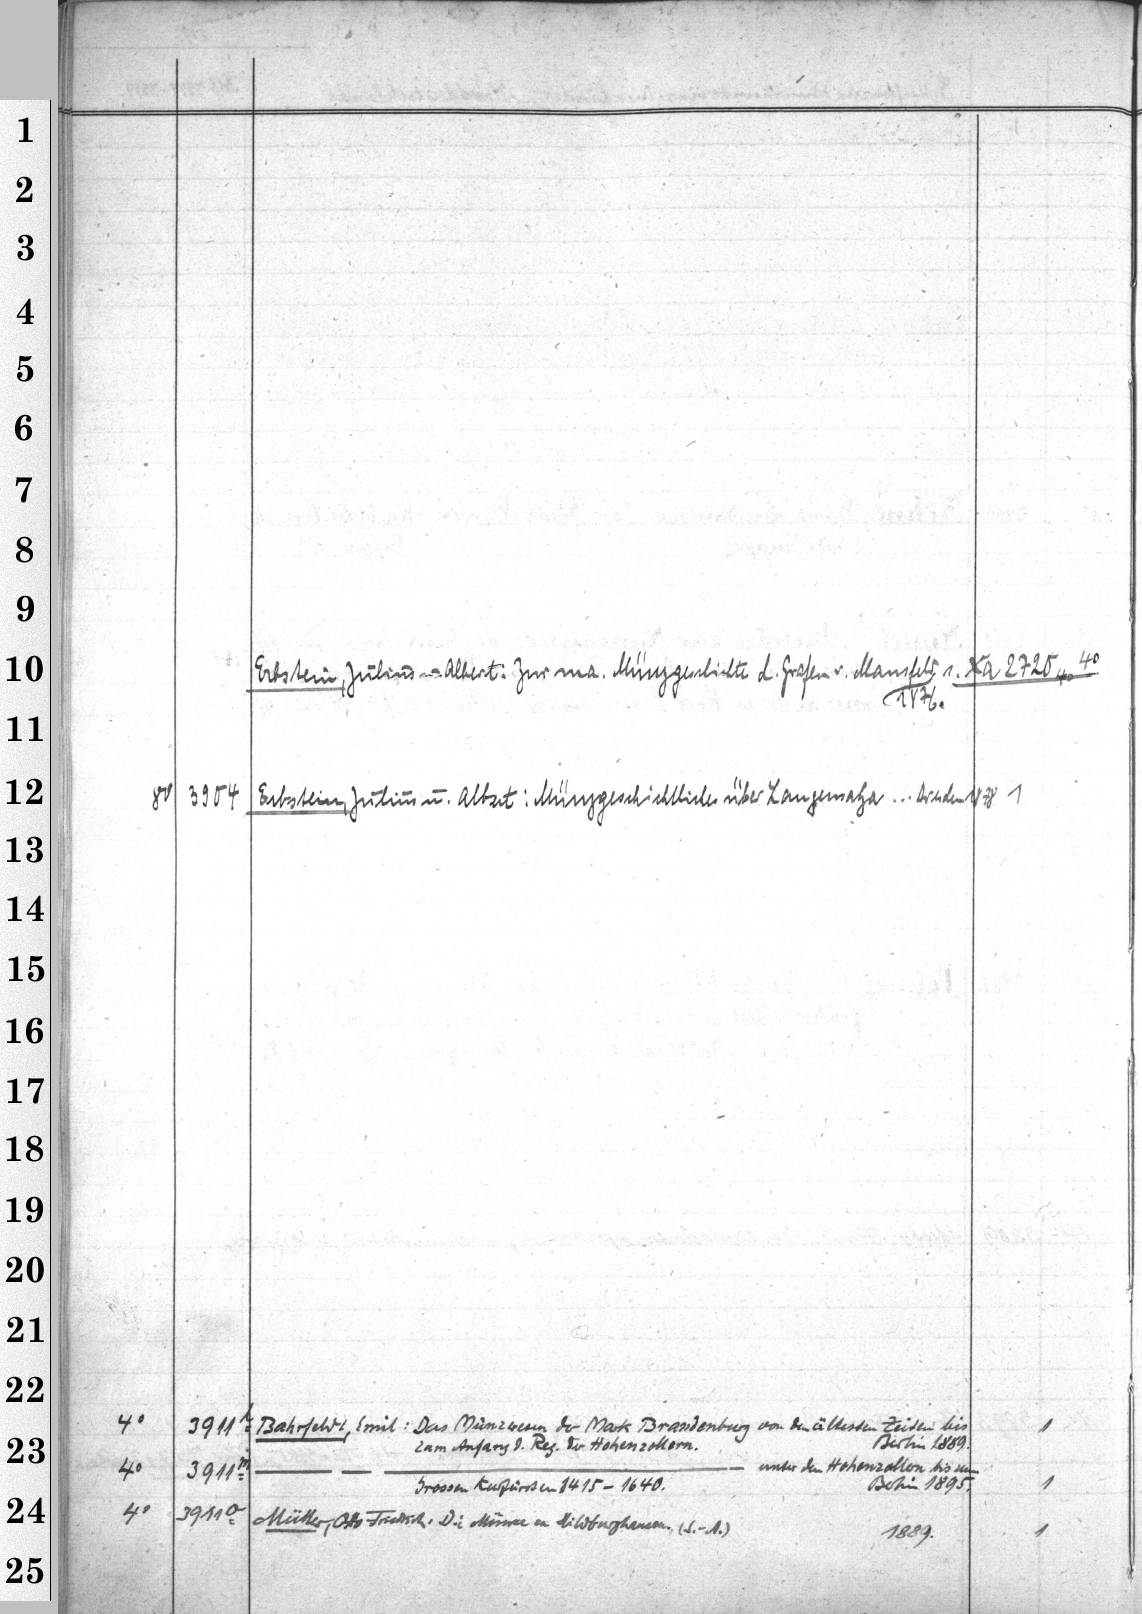 1
2
3
4
5
6
7
8
9
10
11
12
13
14
15
16
17
18
19
20
21
22
23
24
25
Erbstein, Julius u. Albert: Zur ma. Münzgeschichte d. Grafen v. Mansfeld s. Xa 2720 4°
1876.
8° 3904 Erbstein, Julius u. Albert: Münzgeschichtliches über Langensalza ... Dresden 1878 1
4° 3911 Bahrfeldt, Emil: Das Münzwesen der Mark Brandenburg von den ältesten Zeiten bis 1
zum Anfang d. Reg. der Hohenzollern. Berlin 1889.
4° 3911 m ——— — ——— unter den Hohenzollern bis zum
Grossen Kurfürsten 1415 – 1640. Berlin 1895. 1
4° 3911 o Müller, Otto Friedrich: Die Münze zu Hildburghausen. (S.-A.) 1889. 1